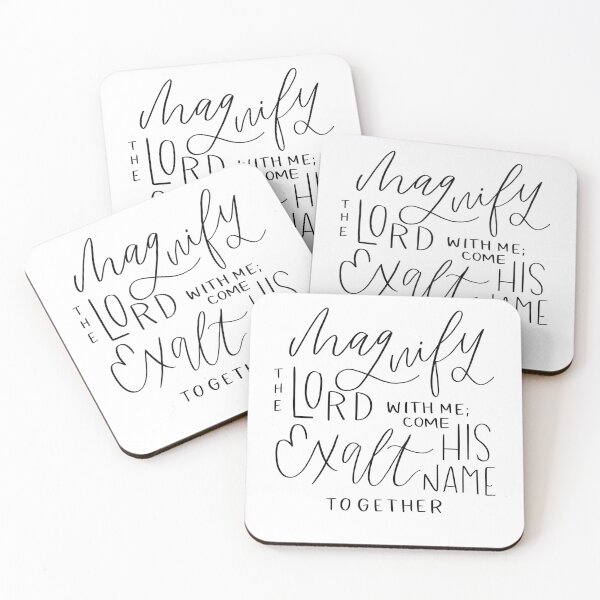 Magnify
THE LORD WITH ME;
COME
HIS
Magnify
THE LORD WITH ME;
COME
Exalt HIS
NAME
Magnify
THE LORD WITH ME;
COME
Exalt HIS
TOGETHER
Magnify
THE LORD WITH ME;
COME
Exalt HIS
NAME
TOGETHER